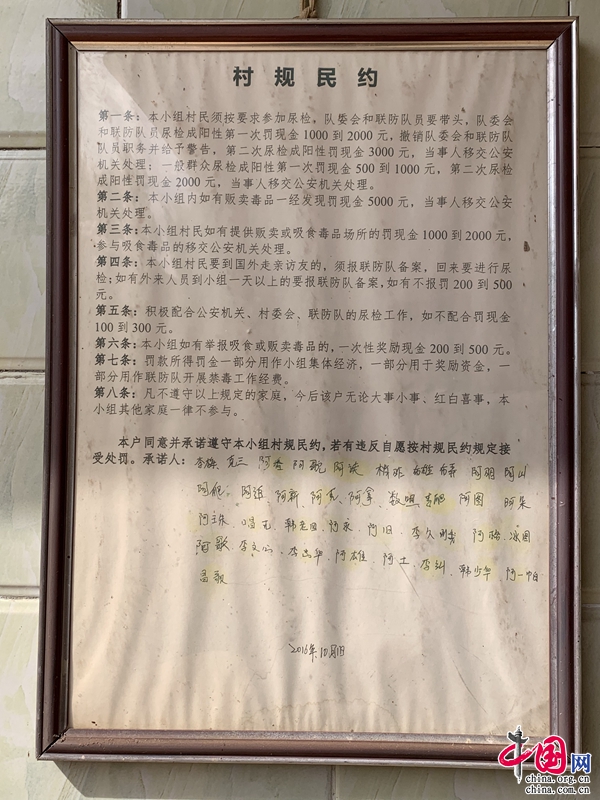 村规民约
第一条：本小组村民须按要求参加尿检，队委会和联防队员要带头，队委会
和联防队员尿检成阳性第一次罚现金 1000 到 2000 元，撤销队委会和联防队
队员职务并给予警告，第二次尿检成阳性罚现金 3000 元，当事人移交公安
机关处理；一般群众尿检成阳性第一次罚现金 500 到 1000 元，第二次尿检
成阳性罚现金 2000 元，当事人移交公安机关处理。
第二条：本小组内如有贩卖毒品一经发现罚现金 5000 元，当事人移交公安
机关处理。
第三条：本小组村民如有提供贩卖或吸食毒品场所的罚现金 1000 到 2000 元，
参与吸食毒品的移交公安机关处理。
第四条：本小组村民要到国外走亲访友的，须报联防队备案，回来要进行尿
检；如有外来人员到小组一天以上的要报联防队备案，如有不报罚 200 到 500
元。
第五条：积极配合公安机关、村委会、联防队的尿检工作，如不配合罚现金
100 到 300 元。
第六条：本小组如有举报吸食或贩卖毒品的，一次性奖励现金 200 到 500 元。
第七条：罚款所得罚金一部分用作小组集体经济，一部分用于奖励资金，一
部分用作联防队开展禁毒工作经费。
第八条：凡不遵守以上规定的家庭，今后该户无论大事小事、红白喜事，本
小组其他家庭一律不参与。
本户同意并承诺遵守本小组村规民约，若有违反自愿按村规民约规定接
受处罚。承诺人：
韩老四 李久明
阿歌 李文心 阿雄 阿土 韩少华 阿一帕
昌歌
2016年10月1日
中国网
china.org.cn
china.com.cn